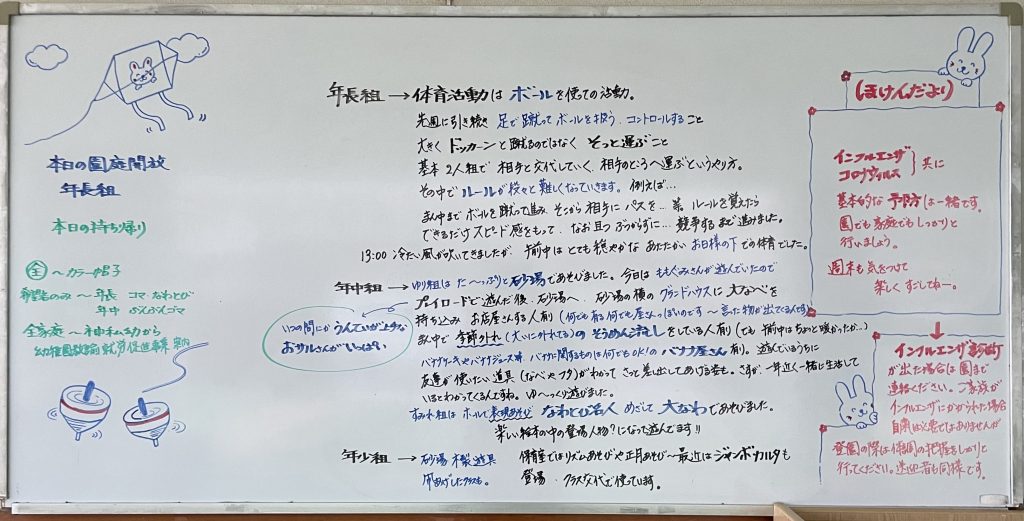 本日の園庭開放
年長組
本日の持ち帰り
全 ～カラー帽子
希望者のみ ～ 年長 コマ・なわとび
年中 ぶんぶんゴマ
全家庭 ～ 神私幼から
幼稚園教諭就労促進事業 案内
年長組 → 体育活動は ボールを使っての活動。
先週に引き続き 足で蹴って ボールを扱う、コントロールすること
大きく ドッカーンと蹴るのではなく そっと運ぶこと
基本 2人組で 相手と交代していく、相手のところへ運ぶというやり方。
その中で ルールが段々と難しくなっていきます。例えば…
まん中まで ボールを蹴って進み そこから相手に パスを… 等 ルールを覚えたら
できるだけスピード感をもって、なお且つ ぶつからずに… 競争するまで進みました。
13:00 冷たい風が吹いてきましたが 午前中は とても穏やかな あたたかい お日様の下での体育でした。
年中組 → ゆり組は た～っぷりと 砂場であそびました。今日は ももぐみさんが遊んでいたので
プレイロードで遊んだ後、砂場へ 砂場の横の グランドハウスに 大なべを
持ち込み お店屋さんする人有り (何でも有る何でも屋さんっぽいのです ～ 言った物が出てくるんです)
まん中で 季節外れ (大いに外れてる) の そうめん流しをしている人有り (でも 午前中はちょっと暖かったか…)
バナナケーキやバナナジュース等 バナナに関するものは何でもOK!の バナナ屋さん有り。遊んでいるうちに
友達が使いたい道具 (なべやフタ) がわかって さっと差し出してあげる姿も。さすが、一年近く一緒に生活して
いるとわかってくるんですね。ゆ～っくり遊びました。
いつの間にか うんていが上手な
おサルさんがいっぱい
すみれ組は ホールで表現あそび なわとび名人 めざして 大なわであそびました。
楽しい絵本の中の登場人物?になって遊んでます!!
年少組 → 砂場 木製遊具 保育室ではリズムあそびや正月あそび～最近はジャンボカルタも
凧あげしたクラスも。 登場、クラス交代で使っています。
ほけんだより
インフルエンザ
コロナウィルス 共に
基本的な 予防は一緒です。
園でも家庭でもしっかりと
行いましょう。
週末も気をつけて
楽しくすごしてねー。
インフルエンザ診断
が出た場合は園まで
連絡ください。ご家族が
インフルエンザにかかられた場合
自粛は必要ではありませんが
登園の際は体調の把握をしっかりと
行ってください。送迎者も同様です。